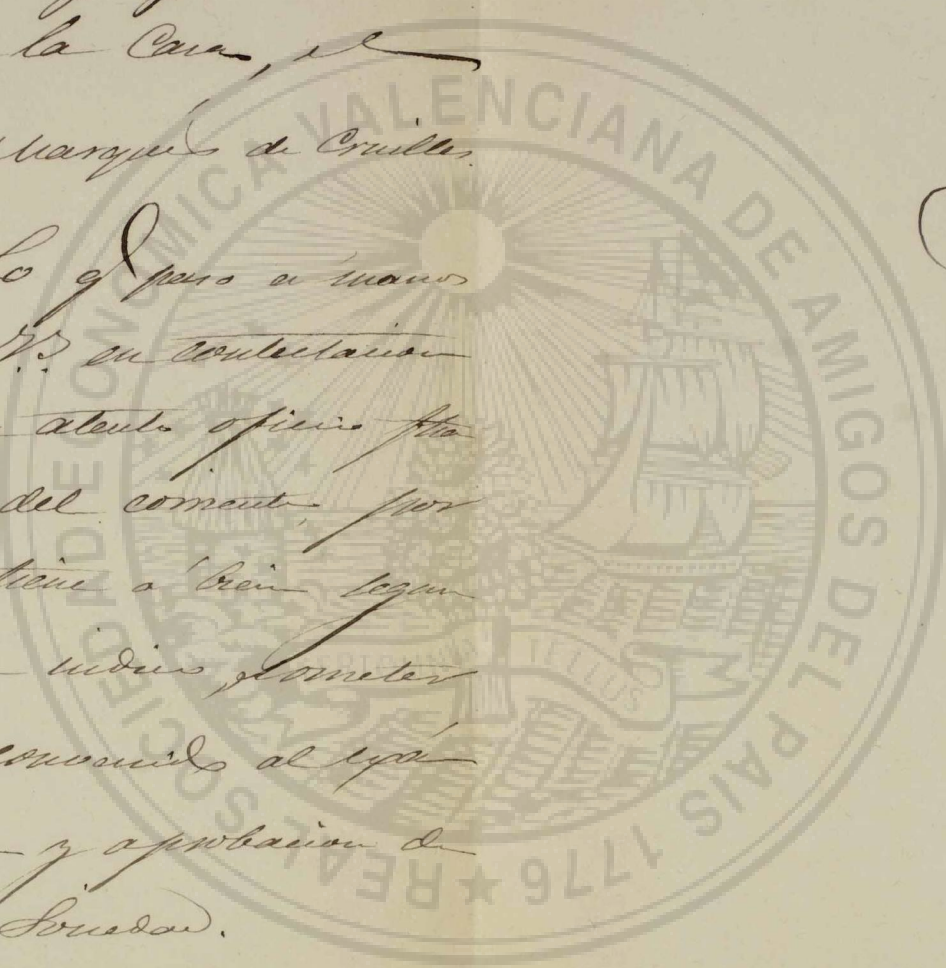 la Casa, el
Marqués de Cruilles.
Lo q. paso a manos
en contestacion
atento oficio fha
del corriente, por
tiene á bien segun
indico, someter
convenido al exá
y aprobacion de
Sociedad.
REAL SOCIEDAD ECONOMICA VALENCIANA DE AMIGOS DEL PAIS 1776 ★
TELLUS